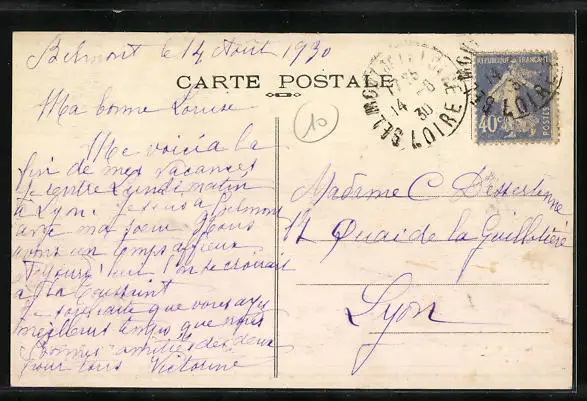 Belmont le 14 Août 1930
CARTE POSTALE
Ma bonne Louise
Me voici à la
fin de mes vacances
Je rentre Lundi matin
à Lyon. Je suis à Belmont
avec ma soeur nous
avons un temps affreux
l'on se croirait
à la Toussaint
Je souhaite que vous ayez
meilleurs temps que nous
Bonnes amitiés des deux
pour tous Victorine
10
BELMONT
14 -8
30
LOIRE
REPUBLIQUE FRANÇAISE
40c
POSTES
BELMONT
14 -8
LOIRE
Madame C Dessertenne
12 Quai de la Guillotière
Lyon